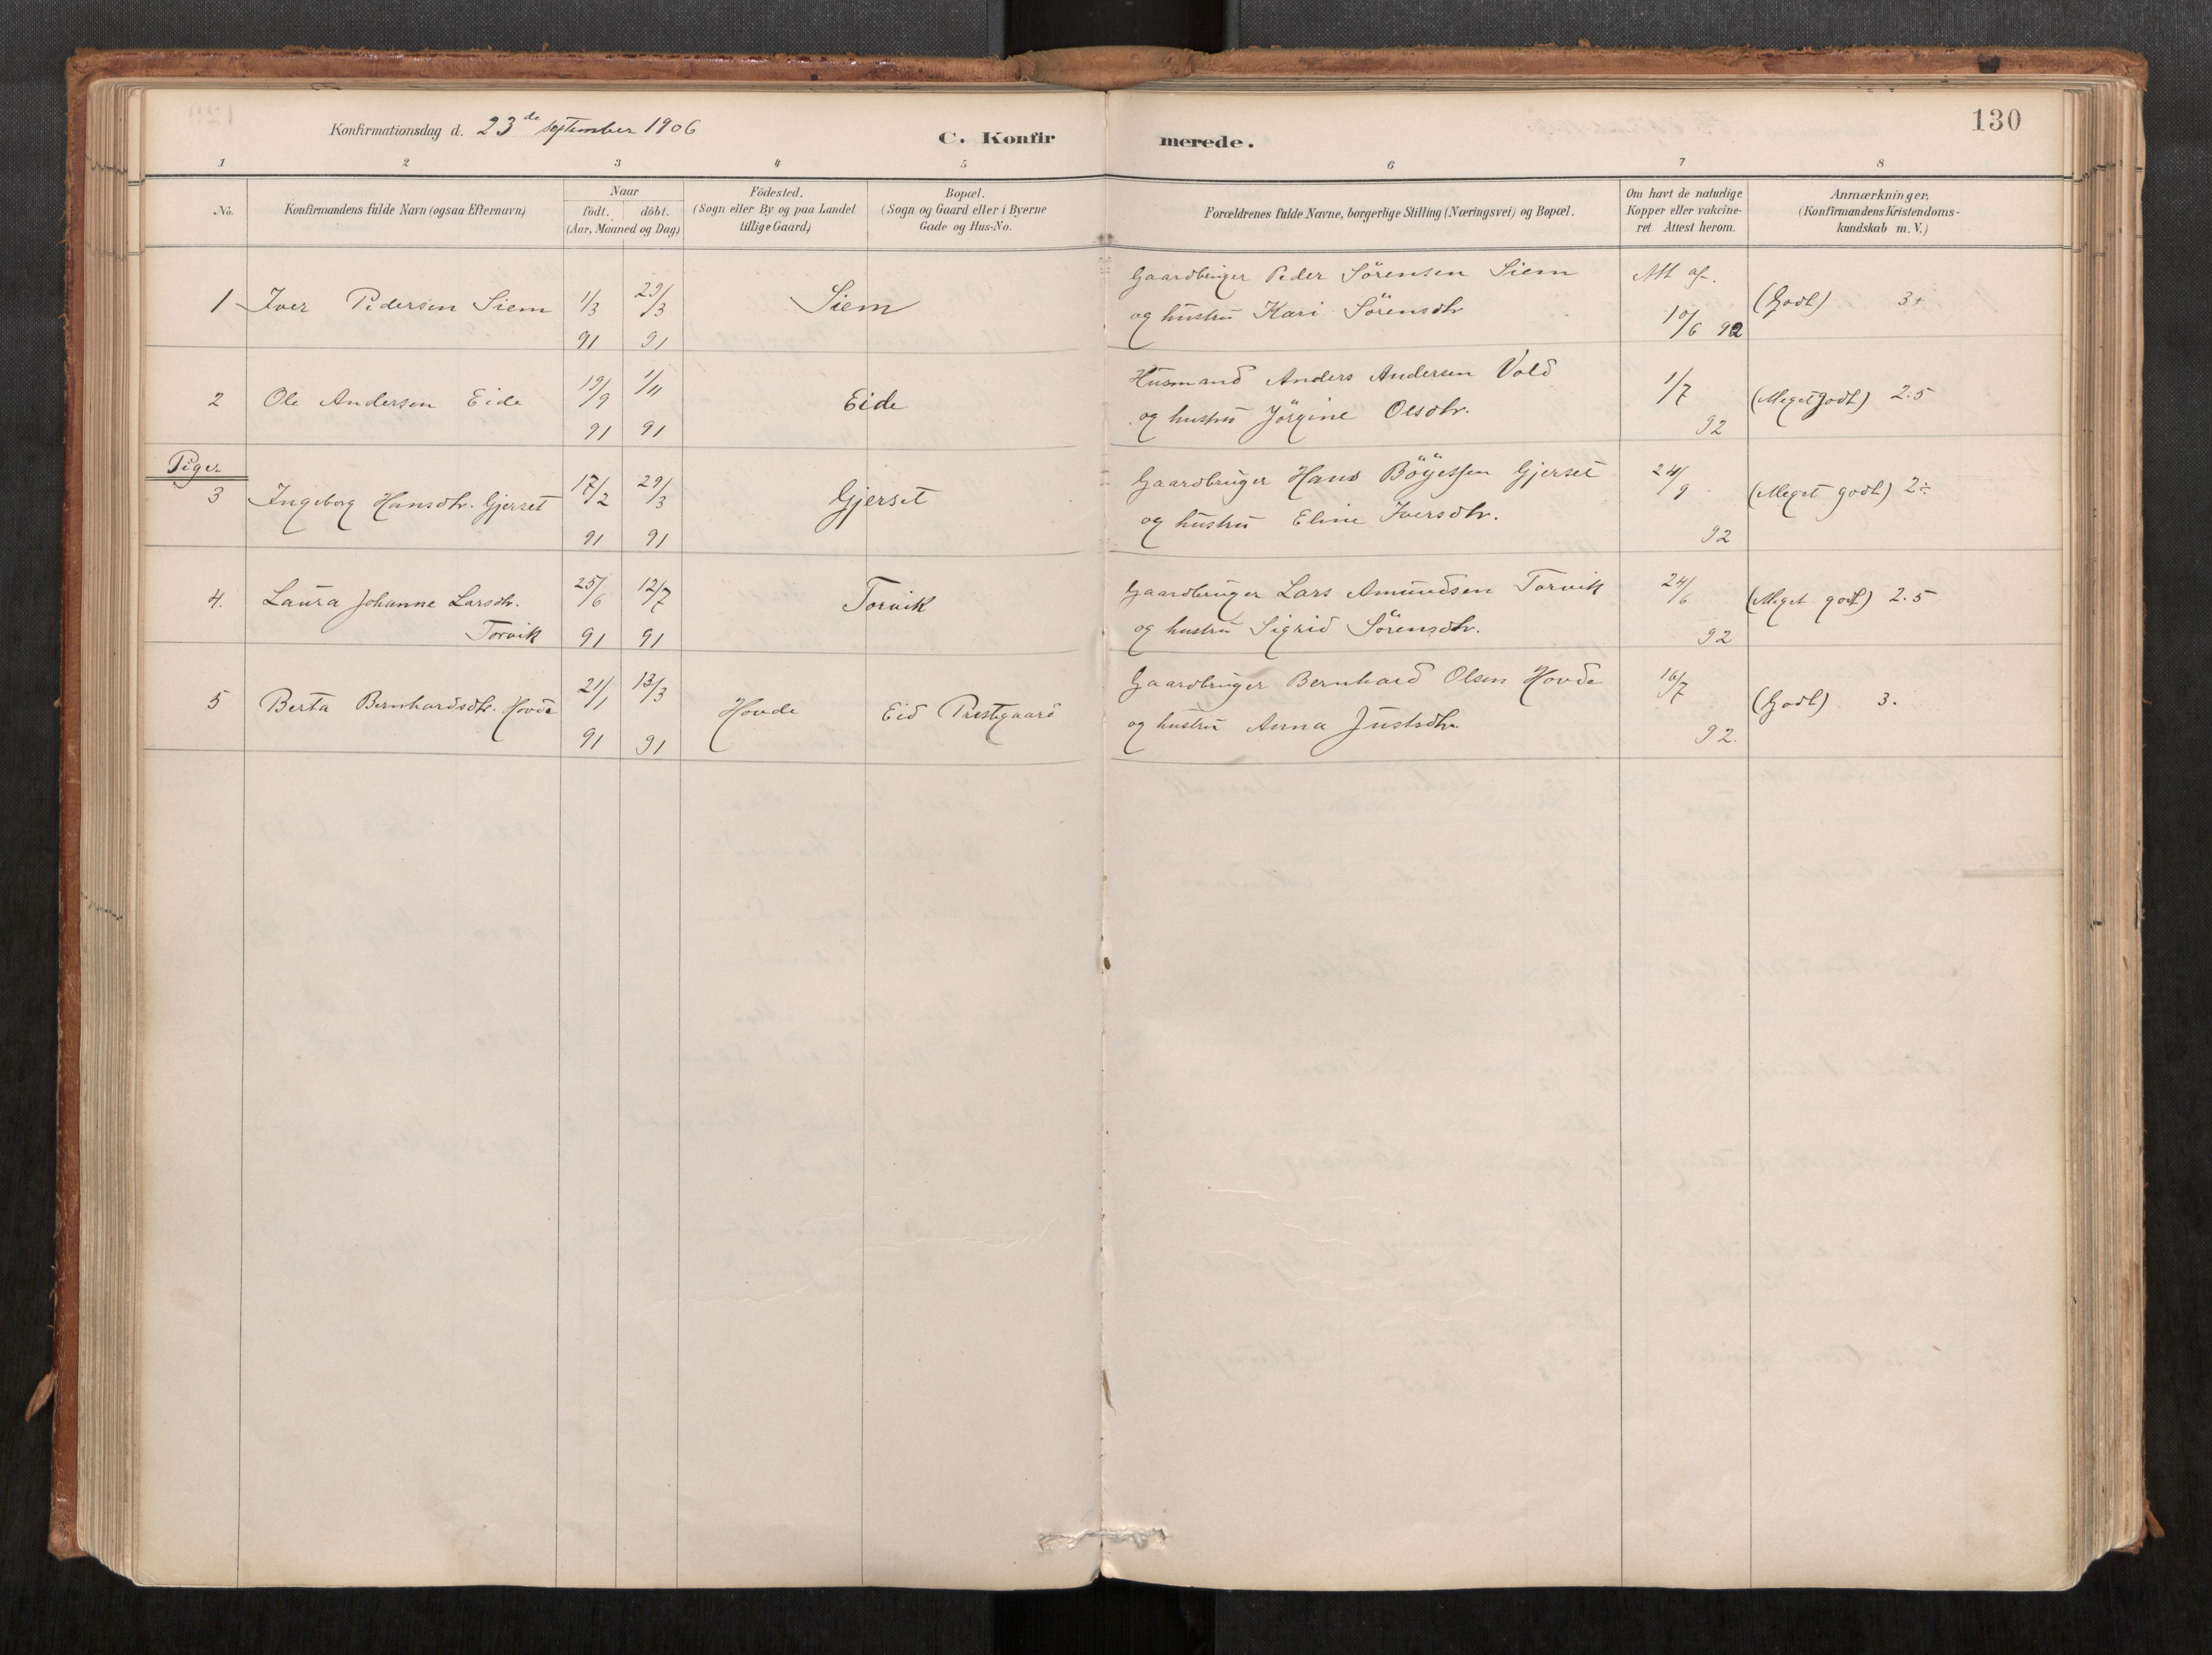 130
Konfirmationsdag d. 23de september 1906
C. Konfirmerede.
1 2 3 4 5 6 7 8
No.
Konfirmandens fulde Navn (ogsaa Efternavn)
Naar
födt. döbt.
(Aar, Maaned og Dag)
Födested.
(Sogn eller By og paa Landet
tillige Gaard)
Bopæl.
(Sogn og Gaard eller i Byerne
Gade og Hus-No.
Forældrenes fulde Navne, borgerlige Stilling (Næringsvei) og Bopæl.
Om havt de naturlige
Kopper eller vakcine-
ret. Attest herom.
Anmærkninger.
(Konfirmandens Kristendoms-
kundskab m. V.)
1 Iver Pedersen Siem 1/3 91 29/3 91 Siem
Gaardbruger Peder Sörensen Siem
og hustru Kari Sörensdtr
Att af. 10/6 92 (Godt) 3+
2 Ole Andersen Eide 19/9 91 1/11 91 Eide
Husmand Anders Andersen Vold
og hustru Jörgine Olsdtr.
1/7 92 (Meget godt) 2.5
Piger
3 Ingeborg Hansdtr. Gjerset 17/2 91 29/3 91 Gjerset
Gaardbruger Hans Böyesen Gjerset
og hustru Eline Iversdtr.
24/9 92 (Meget godt) 2÷
4. Laura Johanne Larsdtr.
Torvik 25/6 91 12/7 91 Torvik
Gaardbruger Lars Amundsen Torvik
og hustru Sigrid Sörensdtr.
24/6 92 (Meget godt) 2.5
5 Berta Bernhardsdtr. Hovde 21/1 91 13/3 91 Hovde Eid Prestgaard
Gaardbruger Bernhard Olsen Hovde
og hustru Anna Justsdtr.
16/7 92. (Godt) 3.